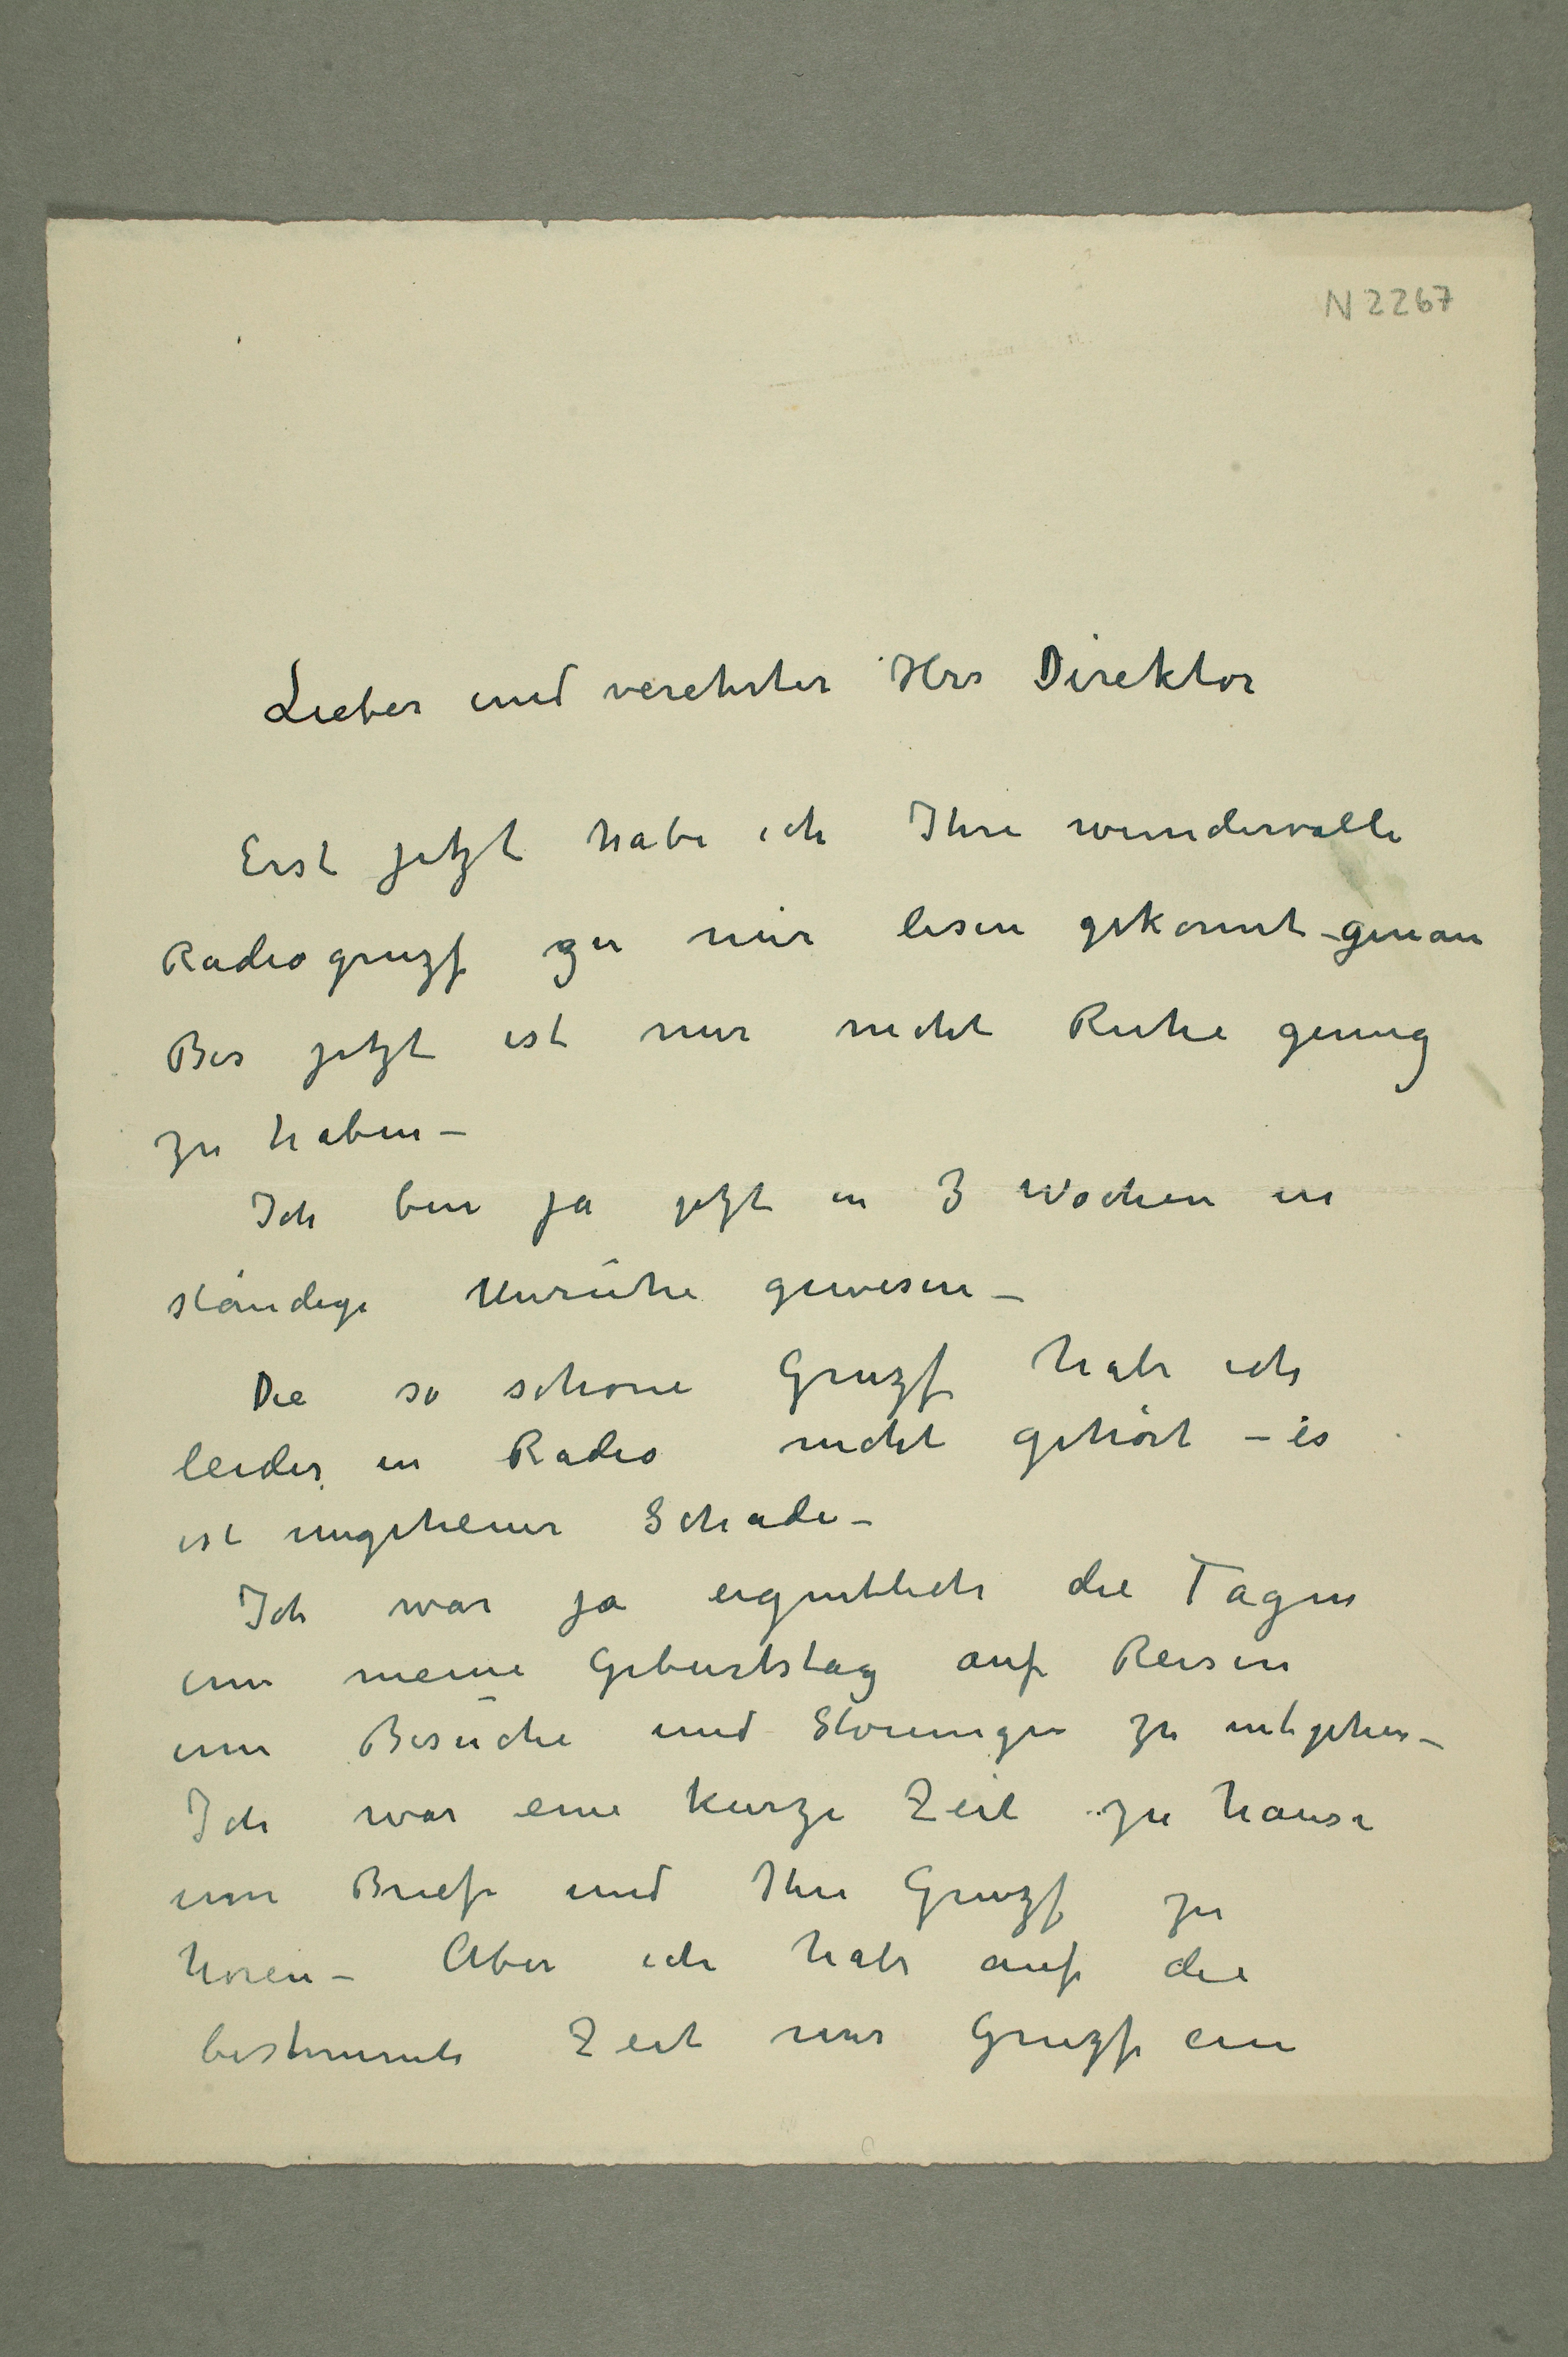 N 2267
Lieber und verehrter Herr Direktor
Erst jetzt habe ich Ihre wundervolle
Radiogruzse zu mir lesen gekonnt – genau
Bis jetzt ist mir nicht Ruhe genug
zu haben –
Ich bin ja jetzt in 3 Wochen in
ständige Unruhe gewesen –
Die so schöne Gruzse habe ich
leider in Radio nicht gehört – es
ist ungeheuer Schade –
Ich war ja eigentlich die Tagen
um meine Geburtstag auf Reisen
um Besuche und Störungen zu entgehen –
Ich war eine kurze Zeit zu hause
um Briefe und Ihre Gruzse zu
hören – Aber ich habe auf die
bestimmte Zeit nur Gruzse